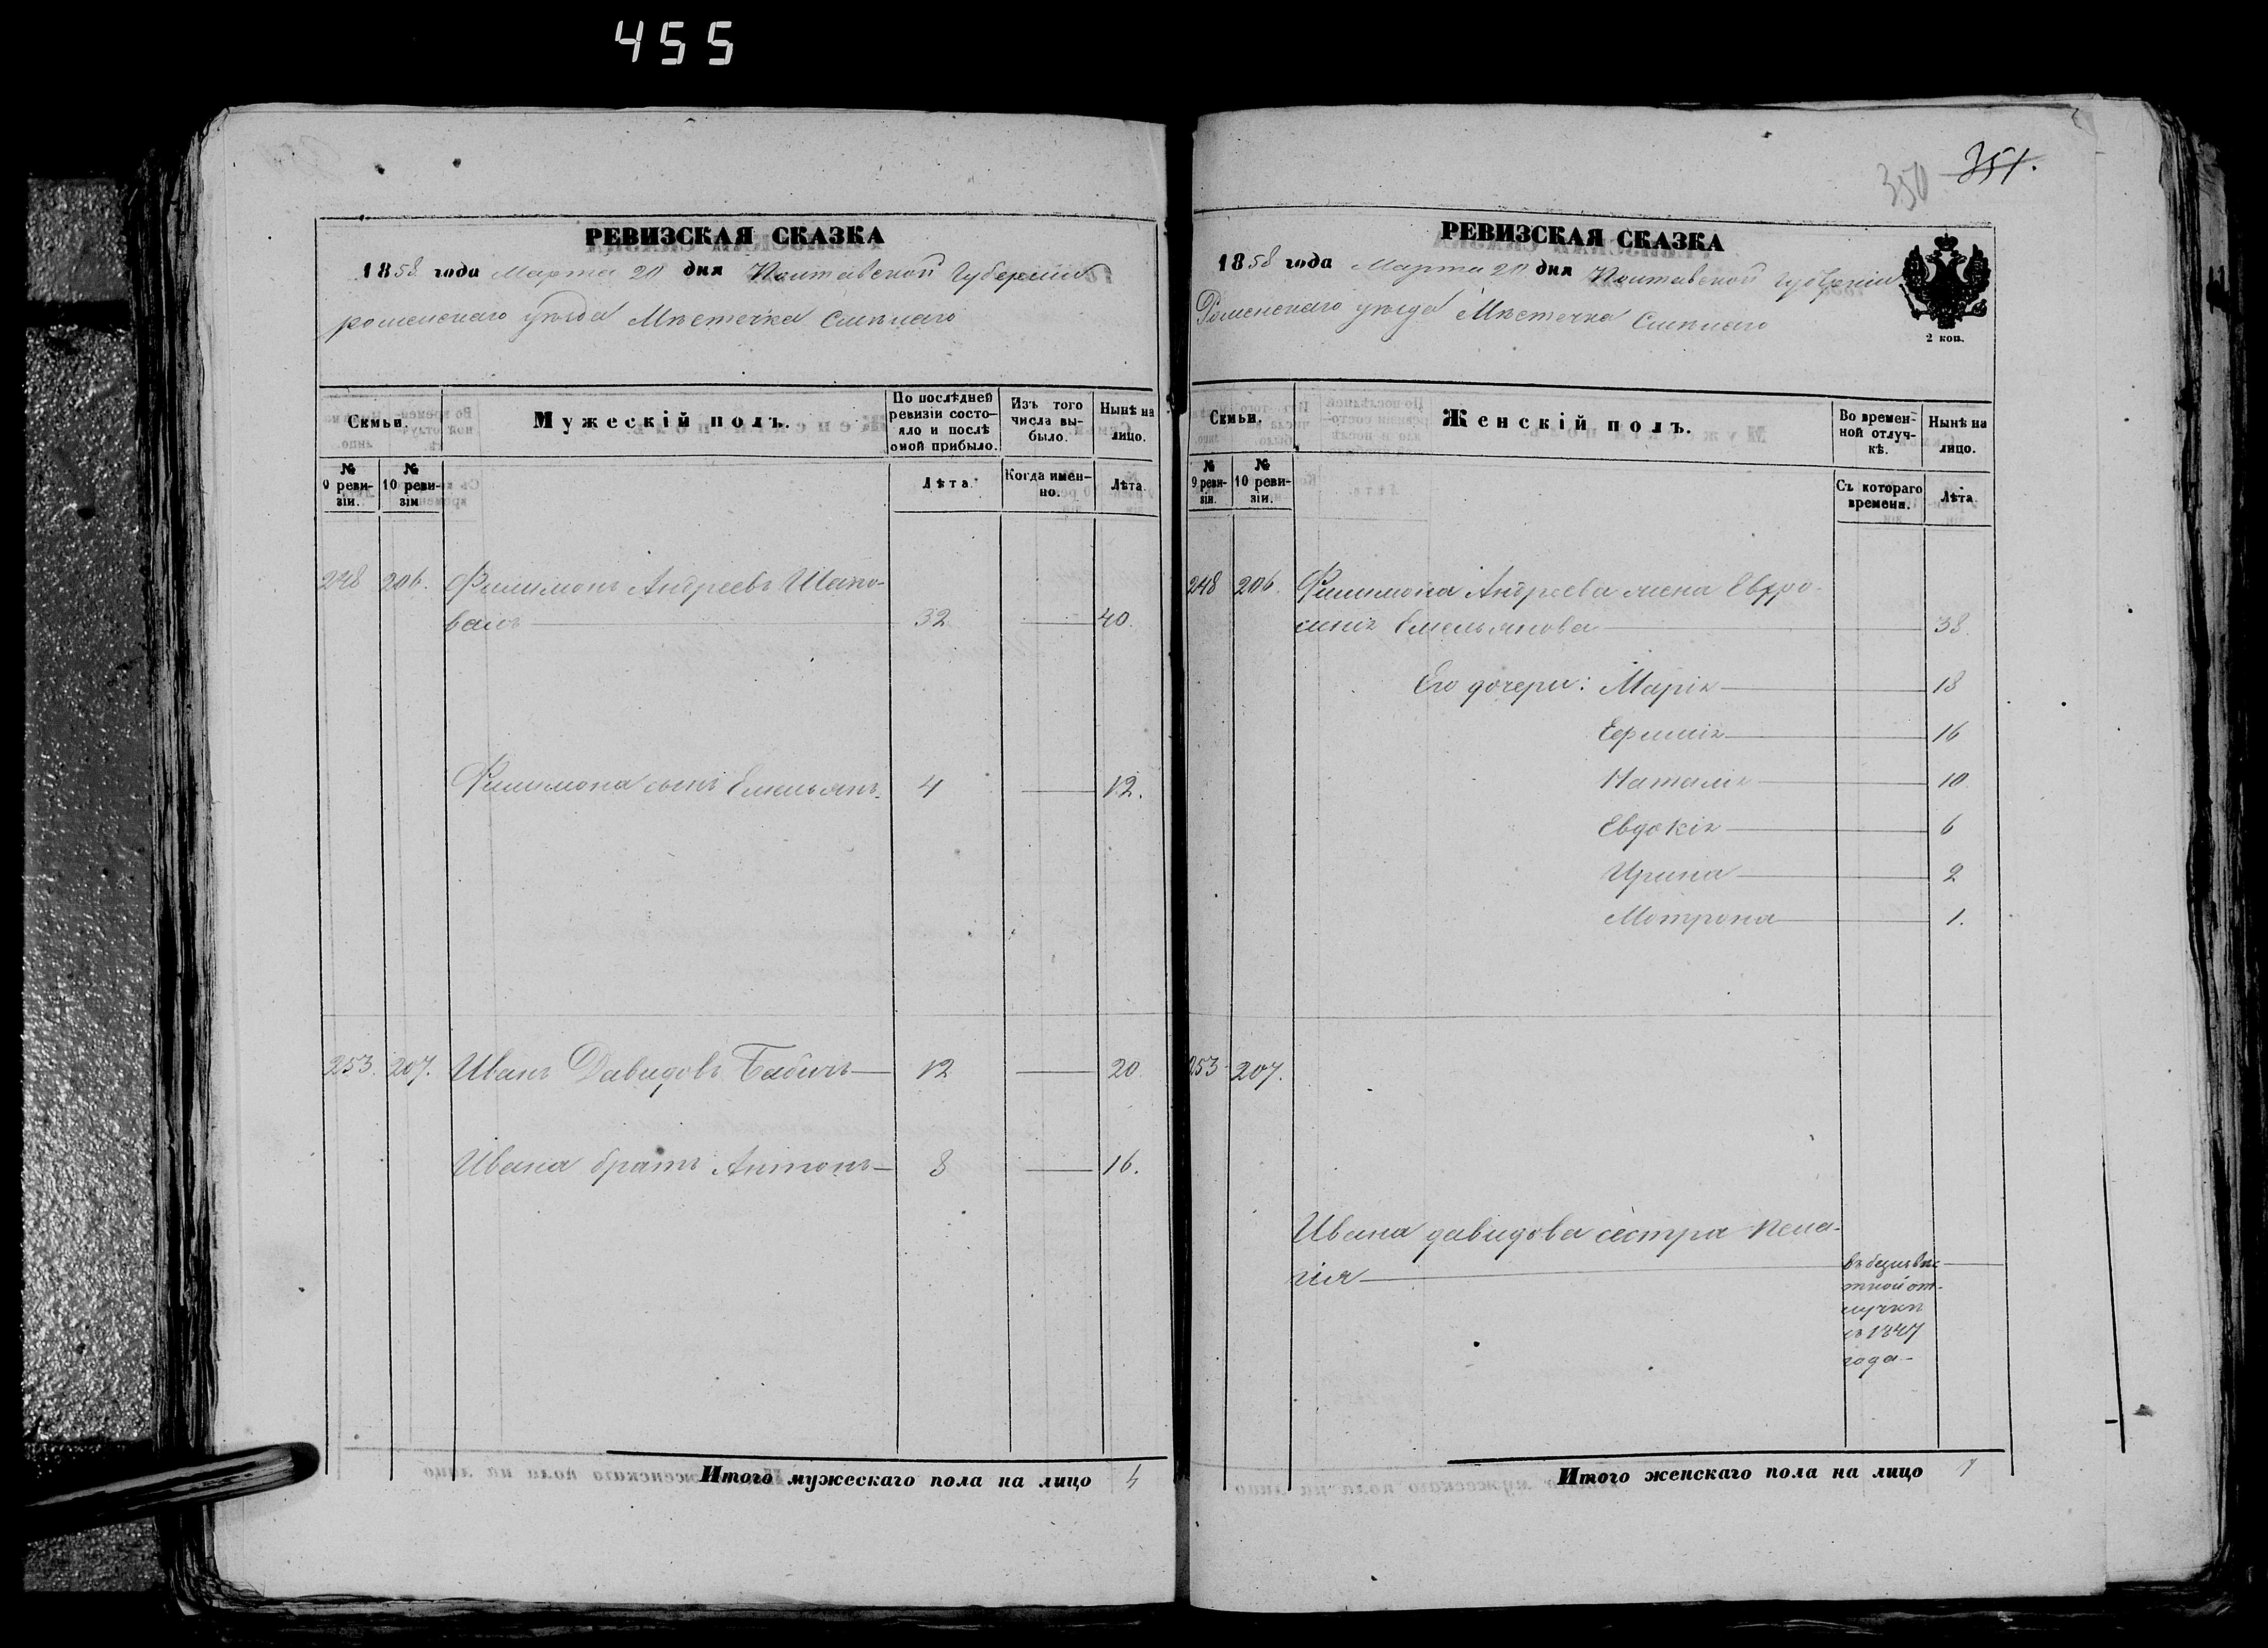 455
РЕВИЗСКАЯ СКАЗКА
1858 года Марта 20 дня Полтавской Губерніи
роменскаго уѣзда Мѣстечка Смѣлаго
Семьи.
Мужескій полъ.
По послѣдней ревизіи состояло и послѣ оной прибыло.
Изъ того числа выбыло.
Нынѣ на лицо.
№ 9 ревизіи.
№ 10 ревизіи
Лѣта.
Когда именно.
Лѣта.
248 206. Филимонъ Андреевъ Шапо-
валъ 32 40.
Филимона сынъ Емельянъ. 4 12.
253. 207. Иванъ Давидовъ Бабичъ 12 20.
Ивана братъ Антонъ 8 16.
Итого мужескаго пола на лицо 4
350 351.
РЕВИЗСКАЯ СКАЗКА
1858 года Марта 20 дня Полтавской Губерніи
Роменскаго уѣзда Мѣстечка Смѣлаго
2 коп.
Семьи.
Женскій полъ.
Во временной отлучкѣ.
Нынѣ на лицо.
№ 9 ревизіи.
№ 10 ревизіи.
Съ котораго времени.
Лѣта
248 206. Филимона Андреева жена Евфро-
синія Емельянова 38.
Его дочери: Марія 18
Ефимія 16
Наталія 10.
Евдокія 6
Ирина 2
Мотрона 1.
253 207.
Ивана давидова сестра Пела-
гія
въ безъизвѣс-
тной от-
лучкѣ
съ 1847
года
Итого женскаго пола на лицо 7